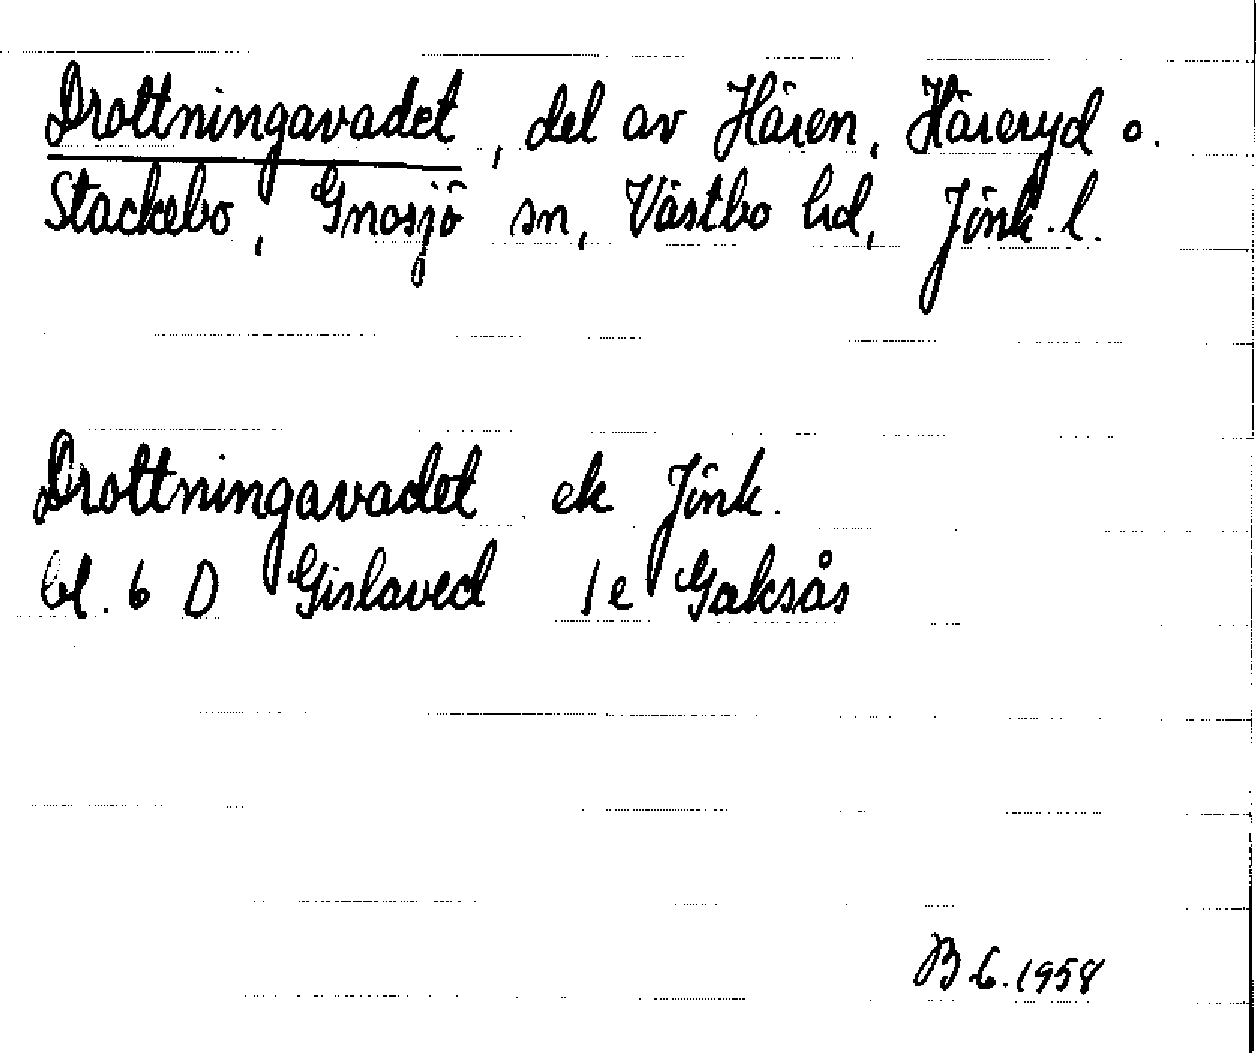 Drottningavadet, del av Hären, Häreryd o.
Stackebo, Gnosjö sn, Västbo hd, Jönk. l.
Drottningavadet ek Jönk.
bl. 6 D Gislaved 1e Gaksås
B 6. 1958